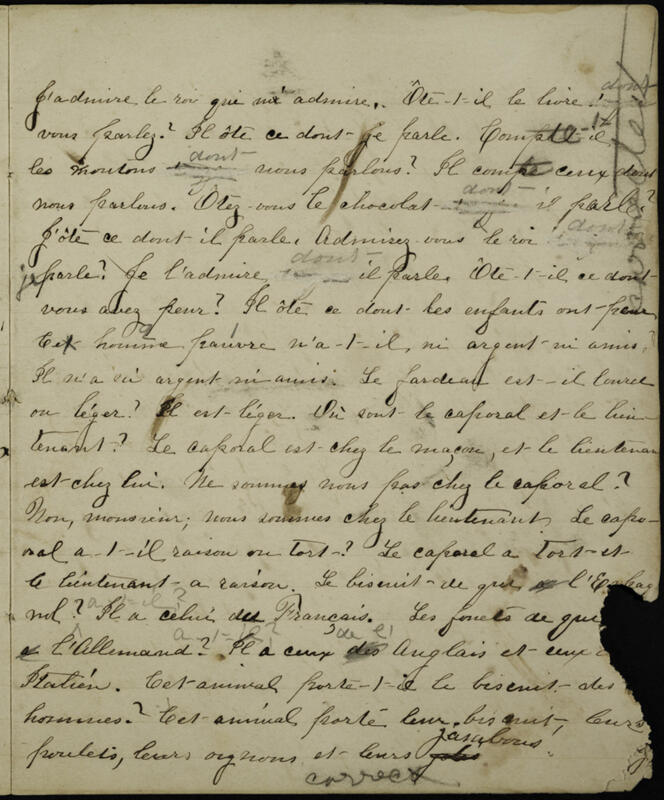 J'admire le roi qui m'admire. Ôte-t-il le livre dont
vous parlez? Il ôte ce dont je parle. Compte-t-il
les moutons dont nous parlons? Il compte ceux dont
nous parlons. Otez-vous le chocolat dont il parle?
J'ôte ce dont il parle. Admirez-vous le roi dont
je parle? Je l'admire dont il parle. Ôte-t-il ce dont
vous avez peur? Il ôte ce dont les enfants ont peur
Cet homme pauvre n'a-t-il, ni argent ni amis?
Il n'a ni argent ni amis. Le fardeau est-il lourd
ou léger? Il est léger. Où sont le caporal et le lieu-
tenant? Le caporal est chez le maçon, et le lieutenan
est chez lui. Ne sommes nous pas chez le caporal?
Non, monsieur; nous sommes chez le lieutenant. Le capo-
ral a-t-il raison ou tort? Le caporal a tort et
le lieutenant a raison. Le biscuit de qui a l'Espag
nol? a-t-il? Il a celui du Français. Les fouets de qui
a l'Allemand? a-t-il? Il a ceux des de l' Anglais et ceux
Italién. Cet animal porte-t-il le biscuit des
hommes? Cet animal porte leur biscuit, leurs
poulets, leurs oignons et leurs jambons
correct